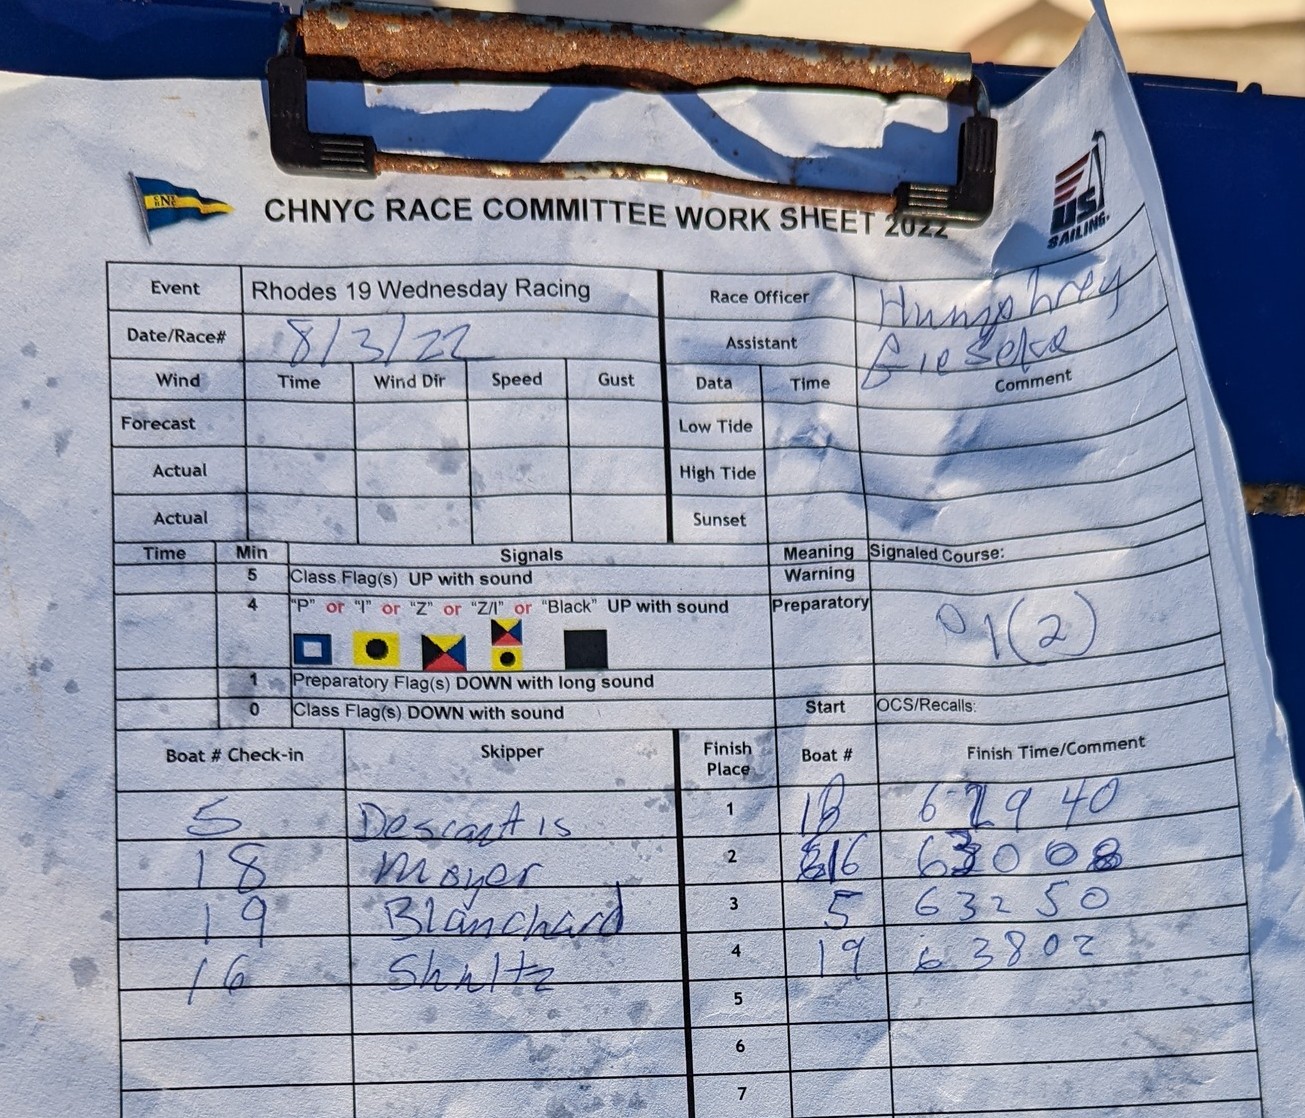 CHNYC RACE COMMITTEE WORK SHEET 2022
US SAILING
Event Rhodes 19 Wednesday Racing Race Officer Humphrey
Date/Race# 8/3/22 Assistant
Wind Time Wind Dir Speed Gust Data Time Comment
Forecast Low Tide
Actual High Tide
Actual Sunset
Time Min Signals Meaning Signaled Course:
5 Class Flag(s) UP with sound Warning
4 "P" or "I" or "Z" or "Z/I" or "Black" UP with sound Preparatory
1 (2)
1 Preparatory Flag(s) DOWN with long sound
0 Class Flag(s) DOWN with sound Start OCS/Recalls:
Boat # Check-in Skipper Finish Place Boat # Finish Time/Comment
5 Descartis 1 18 6 29 40
18 Moyer 2 16 6 30 08
19 Blanchard 3 5 6 32 50
16 Shultz 4 19 6 38 02
5
6
7